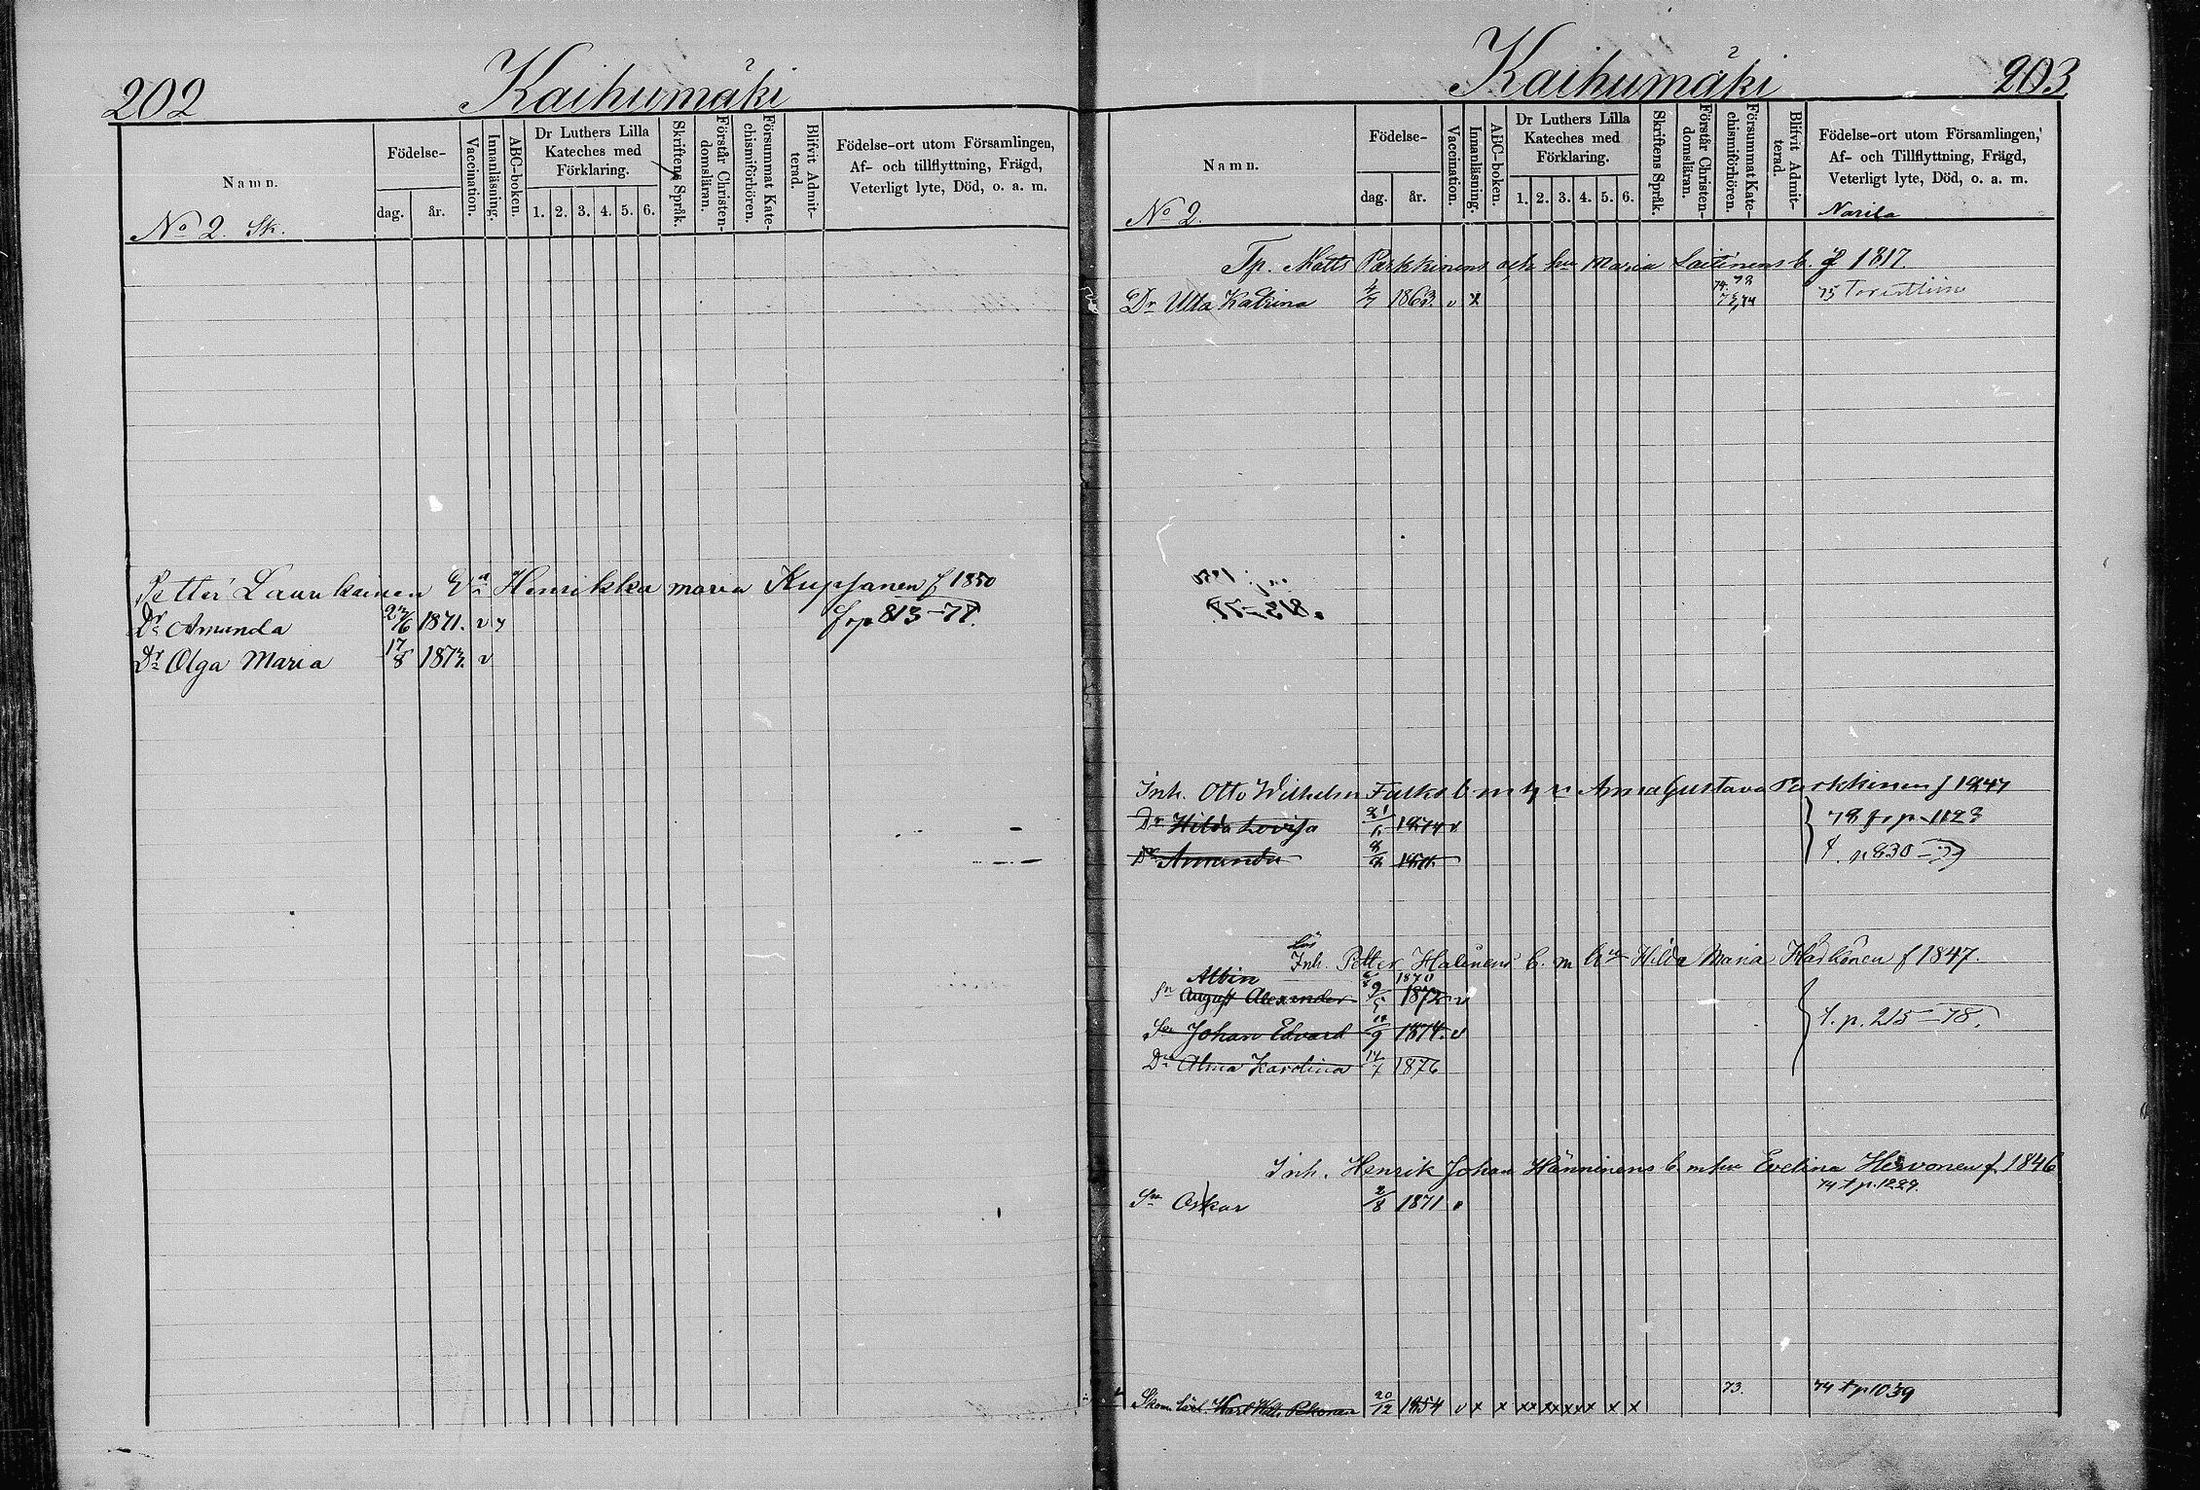 202
Kaihumäki
Namn.
Födelse-
dag.
år.
Vaccination.
Innanläsning.
ABC-boken.
Dr Luthers Lilla
Kateches med
Förklaring.
1. 2. 3. 4. 5. 6.
Skriftens Språk.
Förstår Christen-
domsläran.
Försummat Kate-
chismiförhören.
Blifvit Admit-
terad.
Födelse-ort utom Församlingen,
Af- och tillflyttning, Frägd,
Veterligt lyte, Död, o. a. m.
No 2. Sk.
Petter Laukkainen Henrikka Maria f 1850
Dr Amanda 1871. v
fr p 813-78.
Dr Olga Maria 17/8 1873. v
Kaihumäki
203
Namn.
Födelse-
dag.
år.
Vaccination.
Innanläsning.
ABC-boken.
Dr Luthers Lilla
Kateches med
Förklaring.
1. 2. 3. 4. 5. 6.
Skriftens Språk.
Förstår Christen-
domsläran.
Försummat Kate-
chismiförhören.
Blifvit Admit-
terad.
Födelse-ort utom Församlingen,
Af- och Tillflyttning, Frägd,
Veterligt lyte, Död, o. a. m.
No 2.
Narila
Tp. Matts Parkkinens och hu Maria Laitinens b. f 1817.
Dr Ulla Katrina 1863. v x
Inh. Otto Wilhelm b m Anna Gustava Parkkinen f 1847
Dr Hilda Lovisa 1874 v
78 fr p 1123
Dr Amanda
t. p 830-79
Inh. Petter Halinens b. m hu Hilda Maria f 1847.
Albin 1870
Sn August Alexander 9/5 1872 v
t. p. 215-78.
Sn Johan Edvard 1874. v
Dr Alma Karolina 1876
Inh. Henrik Johan Hänninens b. m hu Evelina Hirvonen f. 1846
74 t p. 1229.
Sn Oskar 2/8 1871
73.
74 t p 1039
20/12 1854 v x x xx xx xx x x x